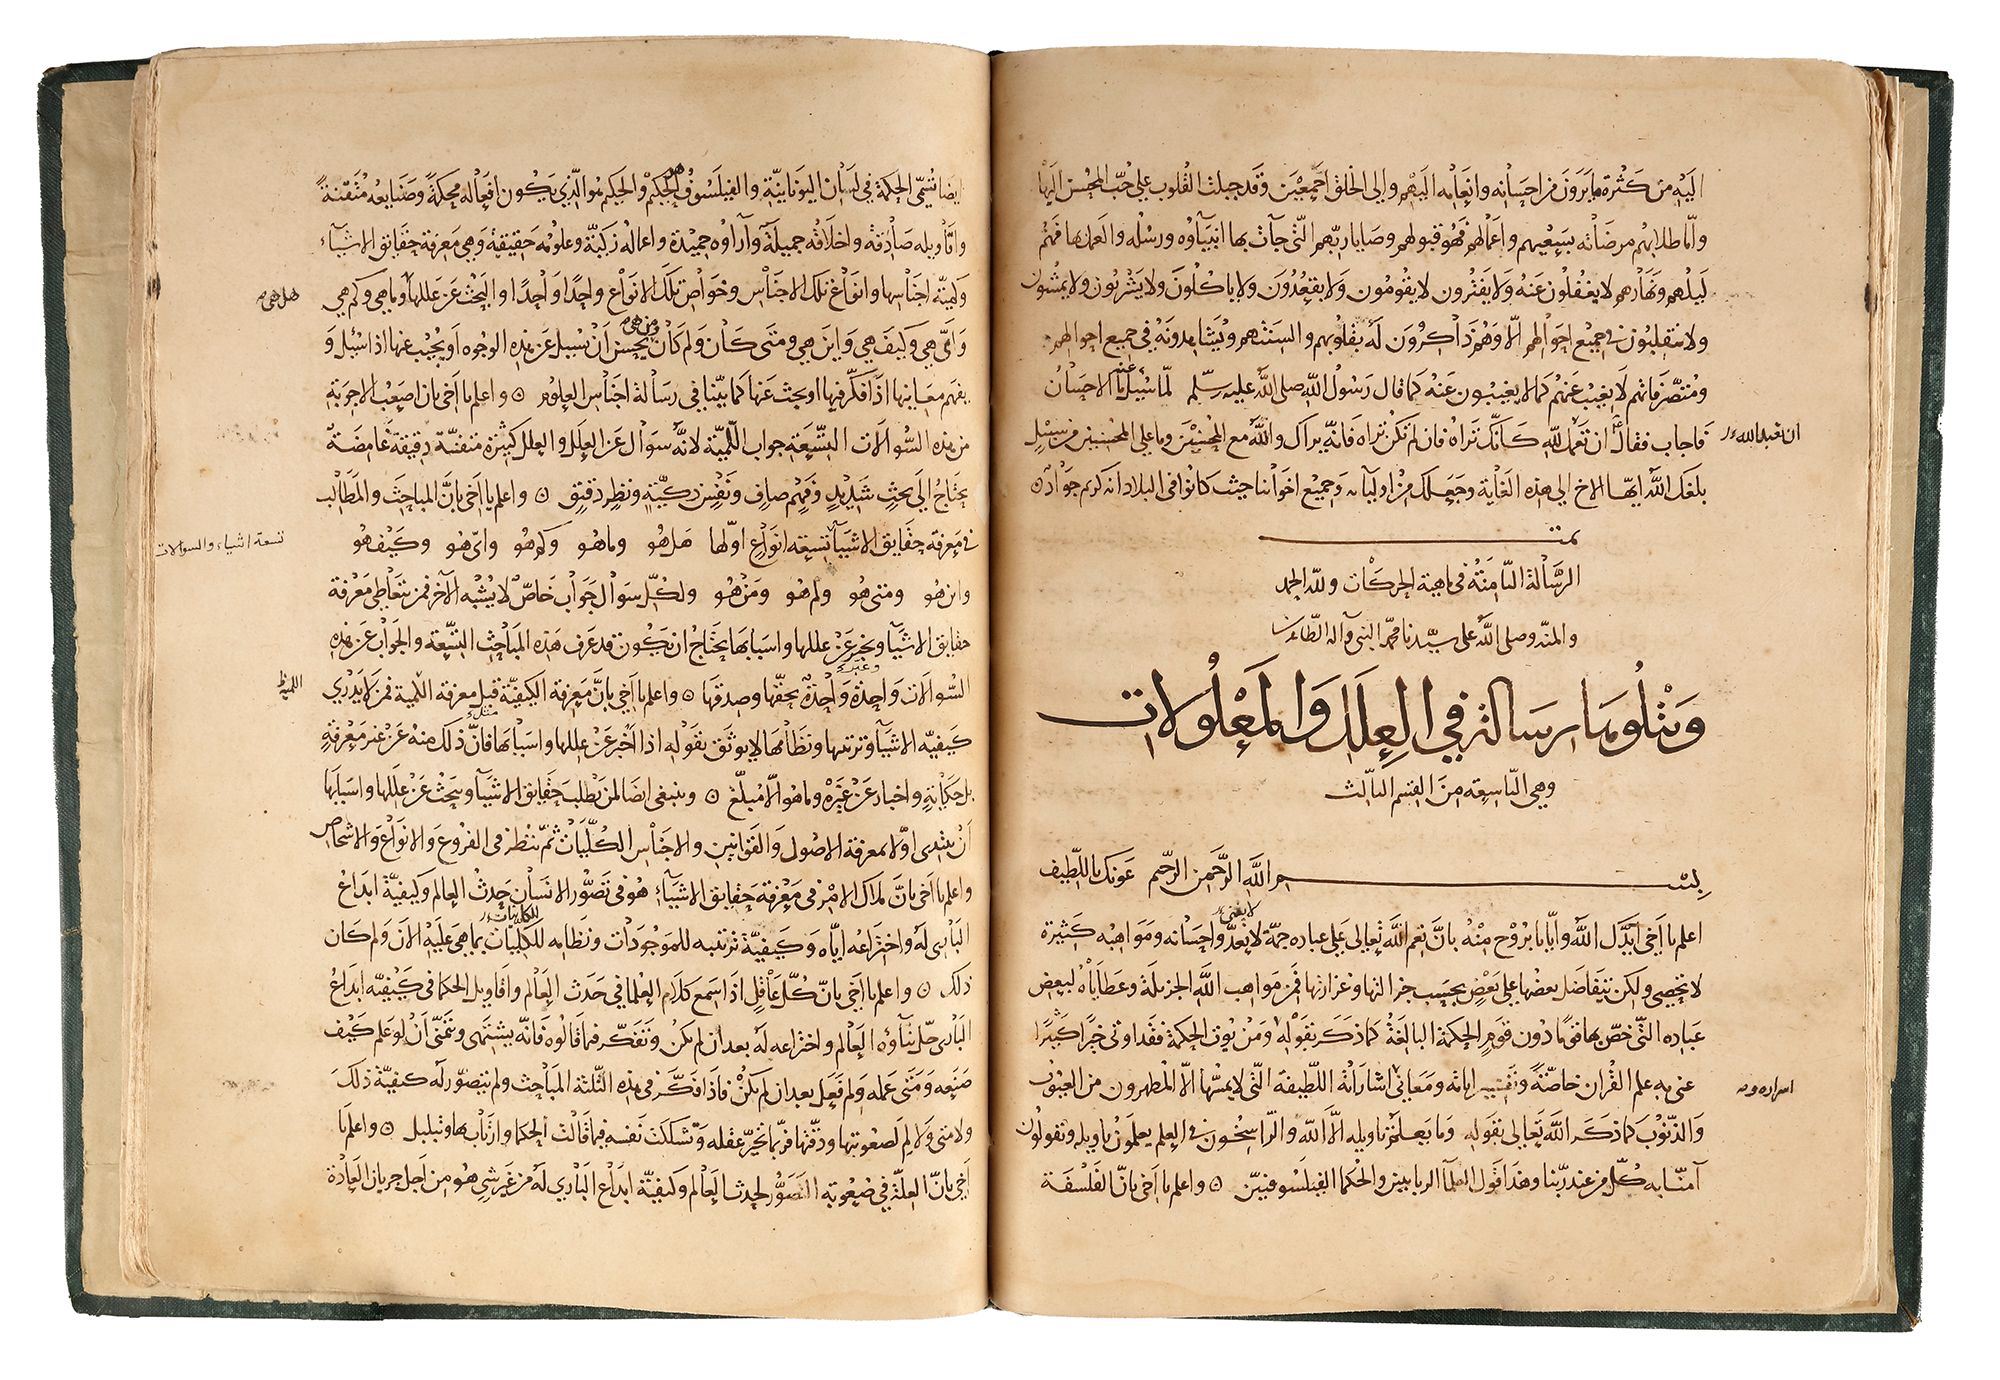 اليه من كثرة ما يرون من احسانه وانعامه اليهم والى الخلق اجمعين وقد جبلت القلوب على حب المحسن اليها
واما طلابهم مرضاته بسعيهم واعمالهم فهو قبولهم وصايا ربهم التي جآت بها انبيآؤه ورسله والعمل بها فهم
ليلهم ونهارهم لا يغفلون عنه ولا يفترون لا يقومون ولا يقعدون ولا ياكلون ولا يشربون ولا يمشون
ولا ينقلبون في جميع احوالهم الا وهم ذاكرون له بقلوبهم والسنتهم ويشاهدونه في جميع احوالهم
ومتصرفاتهم لا يغيب عنهم كما لا يغيبون عنه كما قال رسول الله صلى الله عليه وسلم لما سئل ما الاحسان
فاجاب فقال ان تعمل لله كانك تراه فان لم تكن تراه فانه يراك والله مع المحسنين وما على المحسنين من سبيل
ان تعبد الله
بلغك الله ايها الاخ الى هذه الغاية وجعلك من اوليآئه وجميع اخواننا حيث كانوا في البلاد انه كريم جواد ۝
تمت
الرسالة الثامنة في ماهية الحركات ولله الحمد
والمنه وصلى الله على سيدنا محمد النبي وآله الطاهرين
ويتلوها رسالة في العلل والمعلولات
وهي التاسعة من القسم الثالث
بسم الله الرحمن الرحيم عونك يا اللطيف
لا يفنى
اعلم يا اخي ايدك الله وايانا بروح منه بان نعم الله تعالى على عباده جمة لا تعد واحسانه ومواهبه كثيرة
لا تحصى ولكن يتفاضل بعضها على بعض بحسب جزالتها وغزارتها فمن مواهب الله الجزيلة وعطاياه لبعض
عباده التي خص بها قوما دون قوم الحكمة البالغة كما ذكر بقوله ومن يوت الحكمة فقد اوتي خيرا كثيرا
عنى به علم القران خاصة وتفسير اياته ومعاني اشاراته اللطيفة التي لا يمسها الا المطهرون من العيوب
اسراره و
والذنوب كما ذكر الله تعالى بقوله وما يعلم تاويله الا الله والراسخون في العلم يعلمون تاويله ويقولون
آمنا به كل من عند ربنا وهذا قول العلمآ الربانيين والحكما الفيلسوفيين ۝ واعلم يا اخي بان الفلسفة
ايضا تسمى الحكمة في لسان اليونانية والفيلسوف هو الحكيم والحكيم هو الذي يكون افعاله محكمة وصنايعه متقنة
واقاويله صادقة واخلاقه جميلة وآراؤه حميدة واعماله زكية وعلومه حقيقية وهي معرفة حقايق الاشيآء
وكمية اجناسها وانواع تلك الاجناس وخواص تلك الانواع واحدا واحدا والبحث عن عللها وما هي وكم هي
هل هي
واي هي وكيف هي واين هي ومتى كان ولم كان ومن هي يحسن ان يسيل عن هذه الوجوه او يجيب عنها اذا سئل و
يفهم معانيها اذا فكر فيها او بحث عنها كما بينا في رسالة اجناس العلوم ۝ واعلم يا اخي بان اصعب الاجوبة
من هذه السوالات التسعة جواب اللمية لانه سوال عن العلل والعلل كثيرة متفننة دقيقة غامضة
يحتاج الى بحث شديد وفهم صاف ونفس زكية ونظر دقيق ۝ واعلم يا اخي بان المباحث والمطالب
في معرفة حقايق الاشيآ تسعة انواع اولها هل هو وما هو وكم هو واي هو وكيف هو
تسعة اشياء والسوالات
واين هو ومتى هو ولم هو ومن هو ولكل سوال جواب خاص لا يشبه الآخر فمن يتعاطى معرفة
حقايق الاشيآ ويخبر عن عللها واسبابها يحتاج ان يكون قد عرف هذه المباحث التسعة والجواب عن هذه
السوالات واحدة واحدة بحقها وصدقها ۝ واعلم يا اخي بان معرفة الكيفية قبل معرفة الكمية فمن لا يدري
اللمية
كيفية الاشيآ وترتيبها ونظامها لا يوثق بقوله اذا اخبر عن عللها واسبابها فان ذلك منه عن غير معرفة
بل حكاية واخبار عن غيره وما هو الا مبلغ ۝ وينبغي ايضا لمن يطلب حقايق الاشيآ ويبحث عن عللها واسبابها
ان يبتدى اولا بمعرفة الاصول والقوانين والاجناس الكليات ثم ينظر في الفروع والانواع والاشخاص
واعلم يا اخي بان ملاك الامر في معرفة حقايق الاشيآء هو في تصور الانسان حدث العالم وكيفية ابداع
البارى له واختراعه اياه وكيفية ترتيبه للموجودات ونظامه للكليات بما هي عليه الان ولم كان
للكاينات
ذلك ۝ واعلم يا اخي بان كل عاقل اذا سمع كلام العلما في حدث العالم واقاويل الحكما في كيفيه ابداع
البارى جل ثنآؤه العالم واختراعه له بعد ان لم يكن وتفكر فيما قالوه فانه يشتهى ويتمنى ان لو علم كيف
صنعه ومتى عمله ولم فعل بعد ان لم يكن فاذا فكر في هذه الثلثة المباحث ولم يتصور له كيفية ذلك
ولا متى ولا لم لصعوبتها ودقتها فربما تحير عقله وتشككت نفسه فيما قالت الحكما وارتاب بها وتبلبل ۝ واعلم يا
اخي بان العلة في صعوبة التصور لحدث العالم وكيفية ابداع الباري له من غير شي هو من اجل جريان العادة